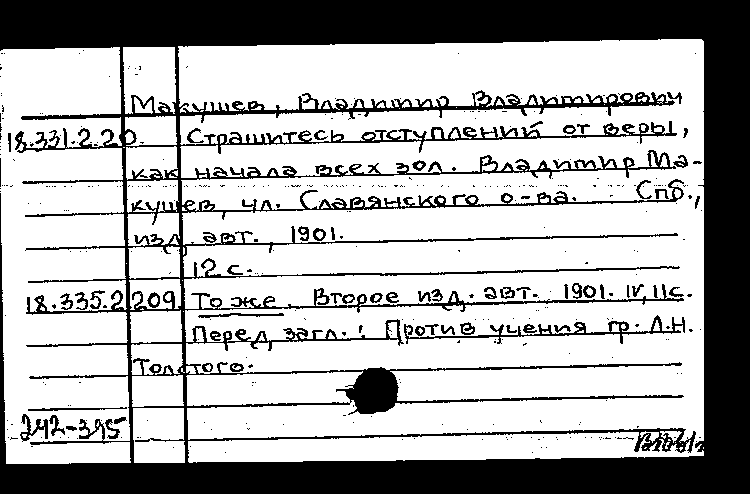 Макушев, Владимир Владимирович
18.331.2.20. Страшитесь отступлений от веры,
как начала всех зол. Владимир Ма-
кушев, чл. Славянского о-ва. Спб.,
изд. авт., 1901.
12 с.
18.335.2.209. То же. Второе изд. авт. 1901. IV, 11 с.
Перед загл.: Против учения гр. Л.Н.
Толстого.
242-395